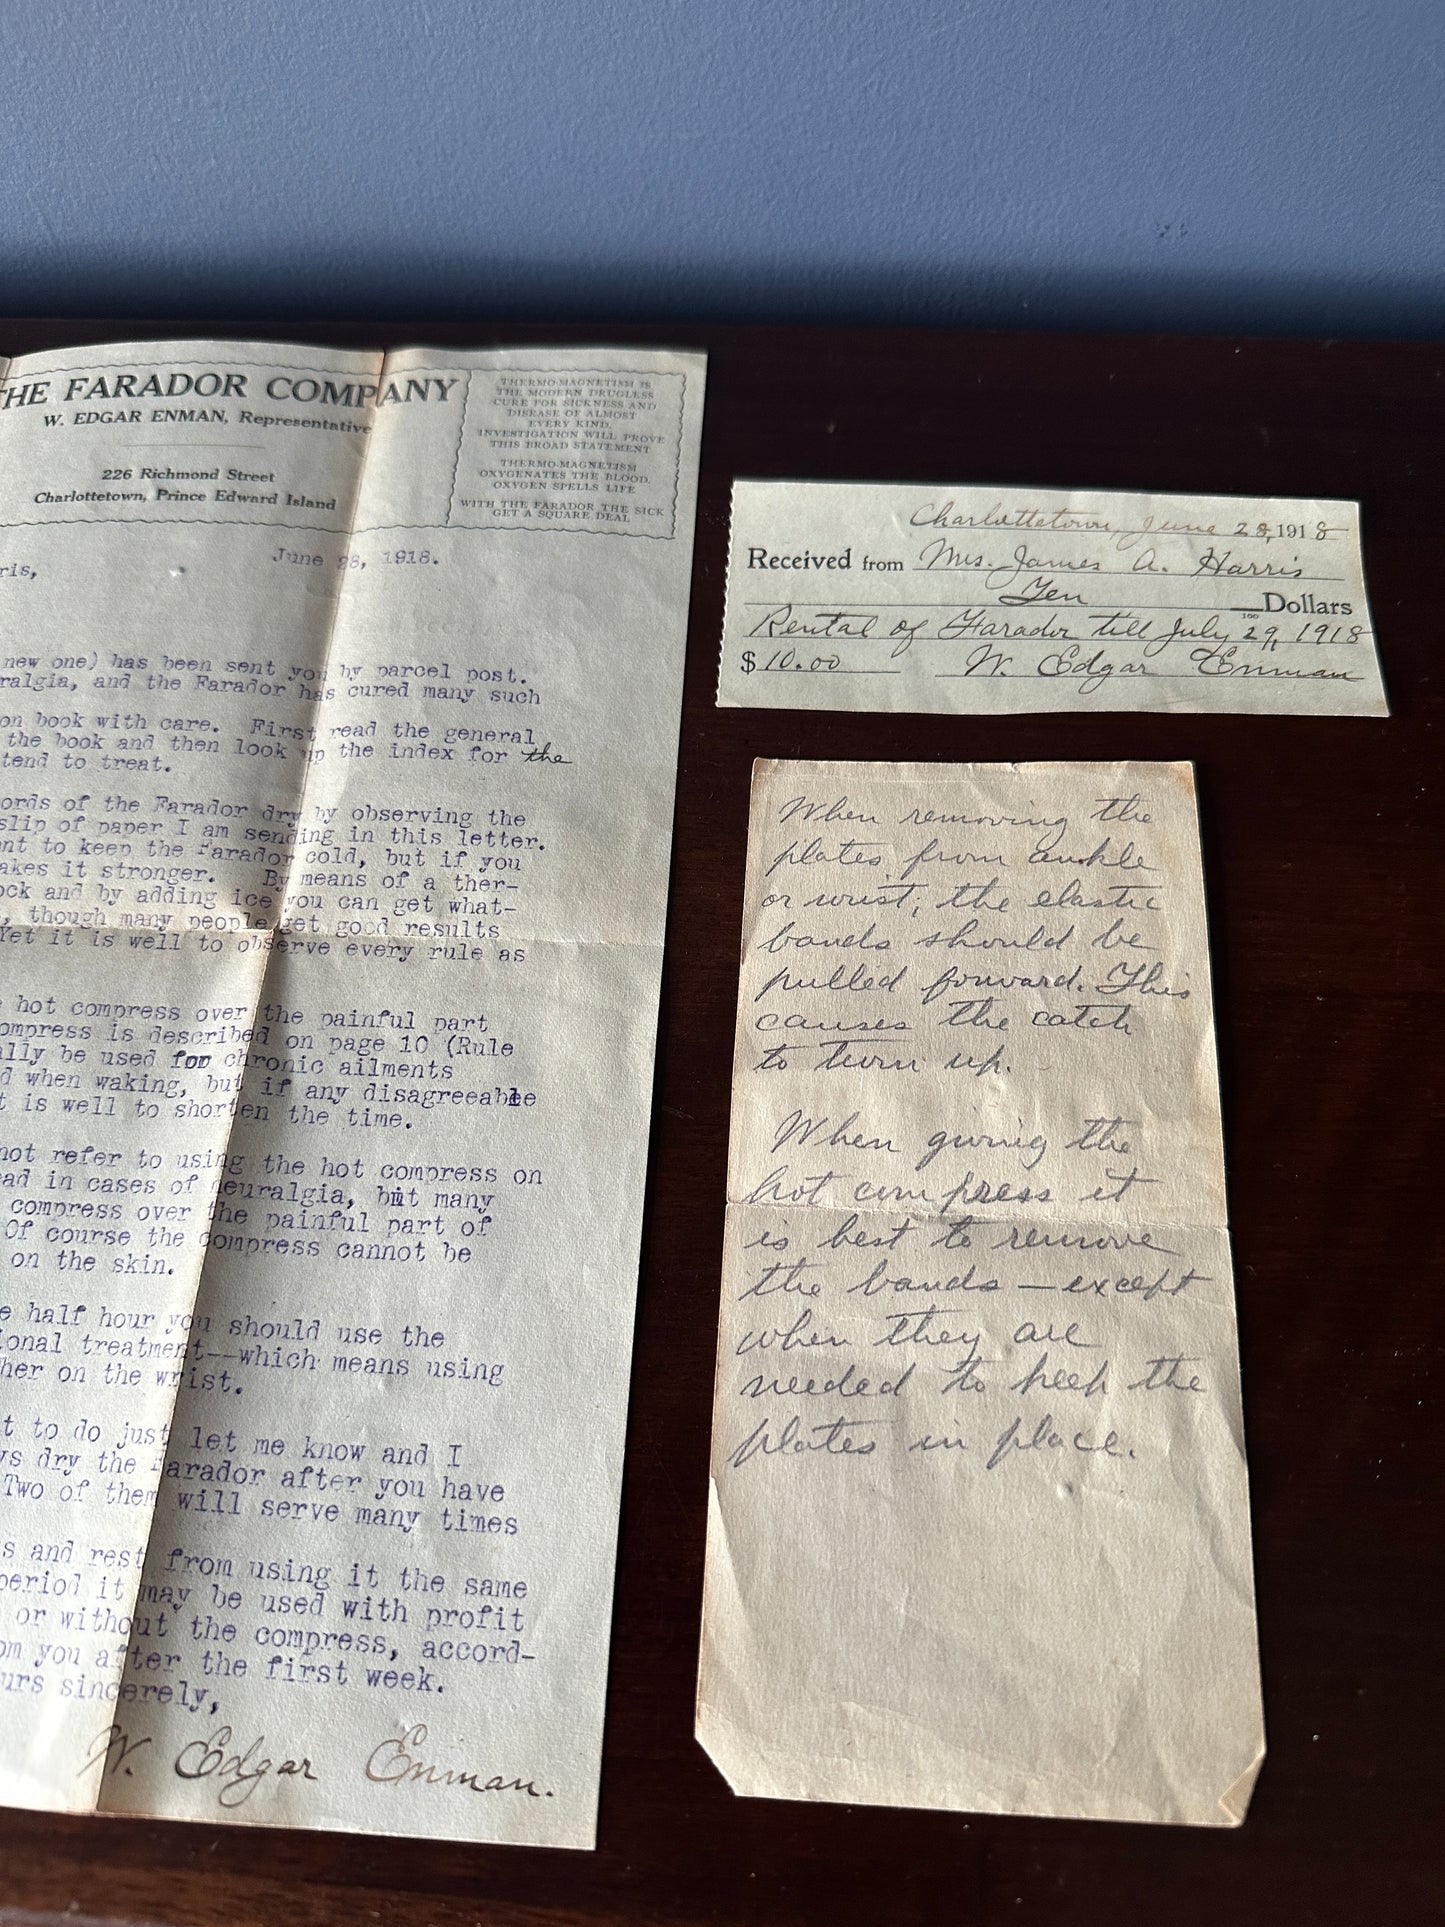 THE FARADOR COMPANY
W. EDGAR ENMAN, Representative
226 Richmond Street
Charlottetown, Prince Edward Island
THERMO-MAGNETISM IS
THE MODERN DRUGLESS
CURE FOR SICKNESS AND
DISEASE OF ALMOST
EVERY KIND.
INVESTIGATION WILL PROVE
THIS BROAD STATEMENT
THERMO-MAGNETISM
OXYGENATES THE BLOOD.
OXYGEN SPELLS LIFE
WITH THE FARADOR THE SICK
GET A SQUARE DEAL
June 28, 1918.
ris,
new one) has been sent you by parcel post.
ralgia, and the Farador has cured many such
on book with care. First read the general
the book and then look up the index for the
tend to treat.
ords of the Farador dry by observing the
slip of paper I am sending in this letter.
nt to keep the Farador cold, but if you
akes it stronger. By means of a ther-
ock and by adding ice you can get what-
, though many people get good results
Yet it is well to observe every rule as
hot compress over the painful part
ompress is described on page 10 (Rule
lly be used for chronic ailments
d when waking, but if any disagreeable
t is well to shorten the time.
not refer to using the hot compress on
ad in cases of neuralgia, but many
compress over the painful part of
Of course the compress cannot be
on the skin.
e half hour you should use the
ional treatment--which means using
her on the wrist.
t to do just let me know and I
ys dry the Farador after you have
Two of them will serve many times
s and rest from using it the same
period it may be used with profit
or without the compress, accord-
om you after the first week.
urs sincerely,
W. Edgar Enman.
Charlottetown, June 28, 1918
Received from Mrs. James A. Harris
Ten 100 Dollars
Rental of Farador till July 29, 1918
$10.00 W. Edgar Enman
When removing the
plates from ankle
or wrist, the elastic
bands should be
pulled forward. This
causes the catch
to turn up.
When giving the
hot compress it
is best to remove
the bands — except
when they are
needed to keep the
plates in place.